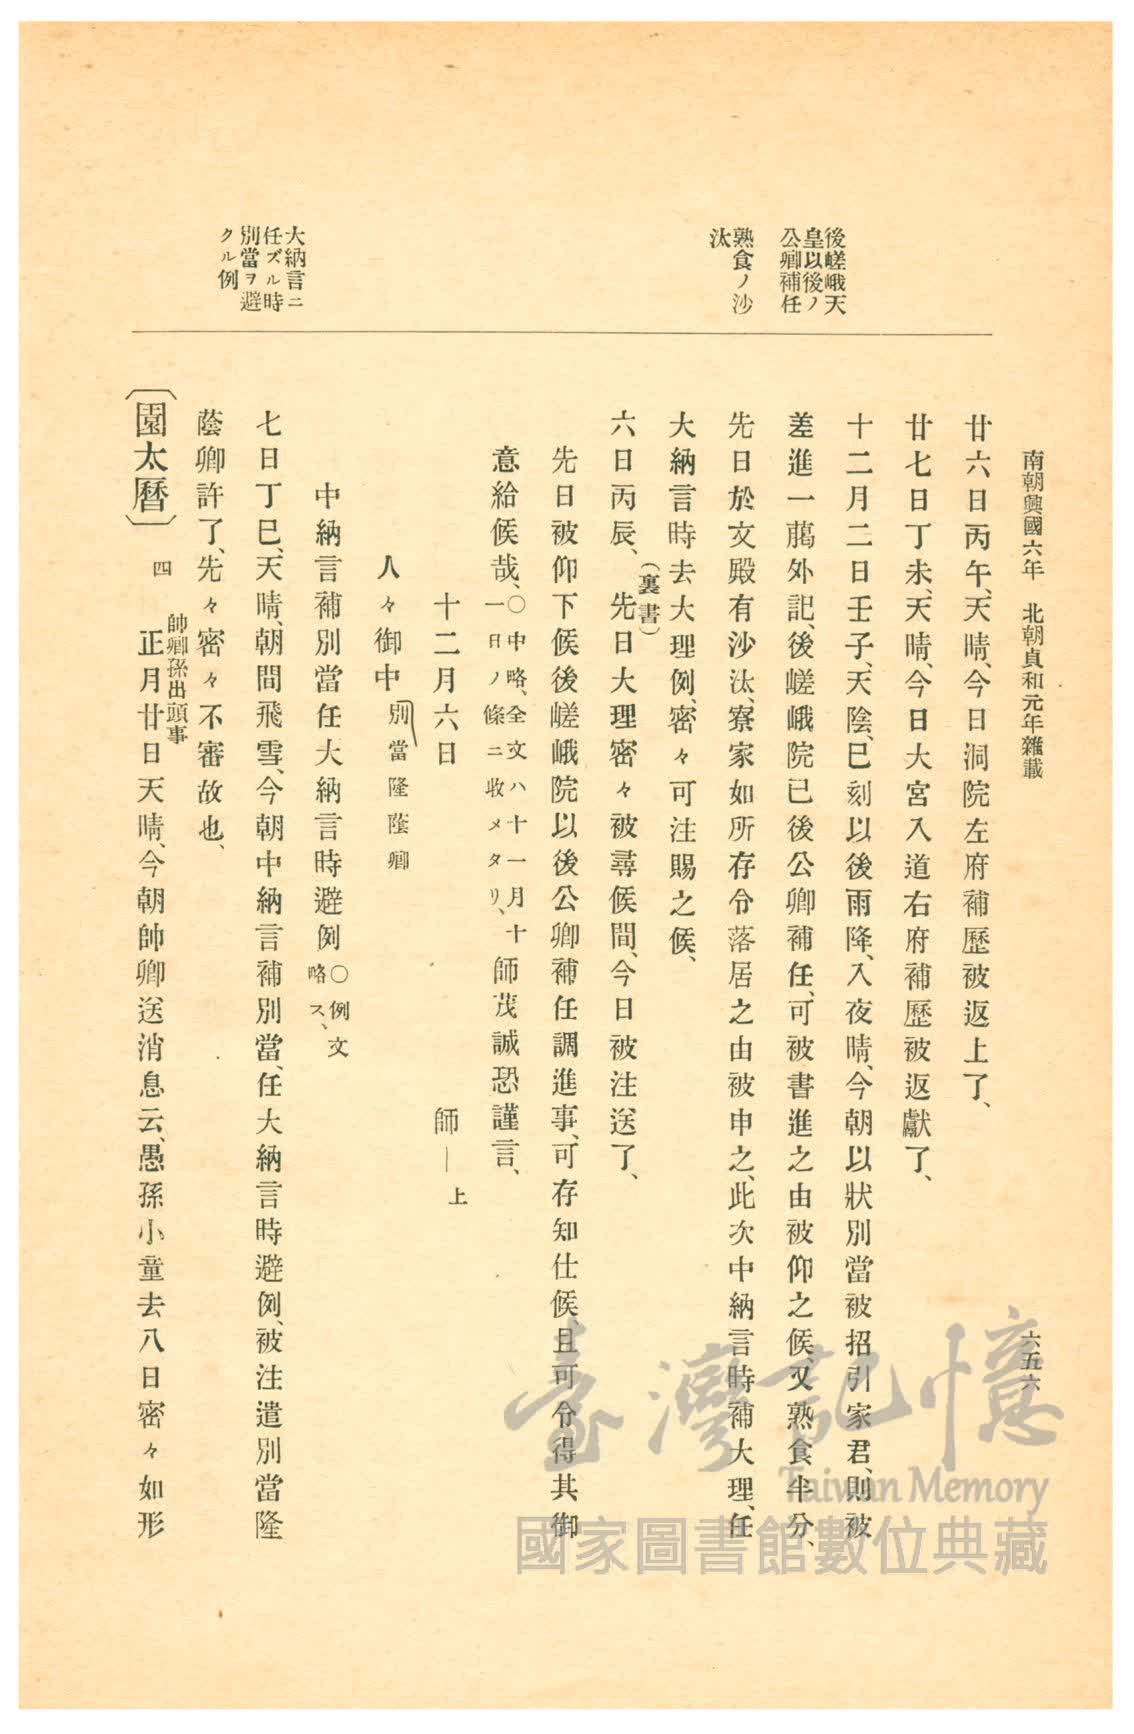 南朝興國六年　北朝貞和元年雜載
六五六
後嵯峨天
皇以後ノ
公卿補任
熟食ノ沙
汰
大納言ニ
任ズル時
別當ヲ避
クル例
廿六日丙午、天晴、今日洞院左府補歷被返上了、
廿七日丁未、天晴、今日大宮入道右府補歷被返獻了、
十二月二日壬子、天陰、巳刻以後雨降、入夜晴、今朝以狀別當被招引家君、則被
差進一﨟外記、後嵯峨院已後公卿補任、可被書進之由被仰之候、又熟食半分、
先日於文殿有沙汰、寮家如所存令落居之由被申之、此次中納言時補大理、任
大納言時去大理例、密々可注賜之候、
六日丙辰、（裏書）先日大理密々被尋候間、今日被注送了、
先日被仰下候後嵯峨院以後公卿補任調進事、可存知仕候、且可令得其御
意給候哉、〇中略、全文ハ十一月十一日ノ條ニ收メタリ、師茂誠恐謹言、
十二月六日　師―上
人々御中 別當隆蔭卿
中納言補別當任大納言時避例〇例文略ス、
七日丁巳、天晴、朝間飛雪、今朝中納言補別當、任大納言時避例、被注遣別當隆
蔭卿許了、先々密々不審故也、
〔園太曆〕四　帥卿孫出頭事
正月廿日天晴、今朝帥卿送消息云、愚孫小童去八日密々如形
臺灣記憶
Taiwan Memory
國家圖書館數位典藏